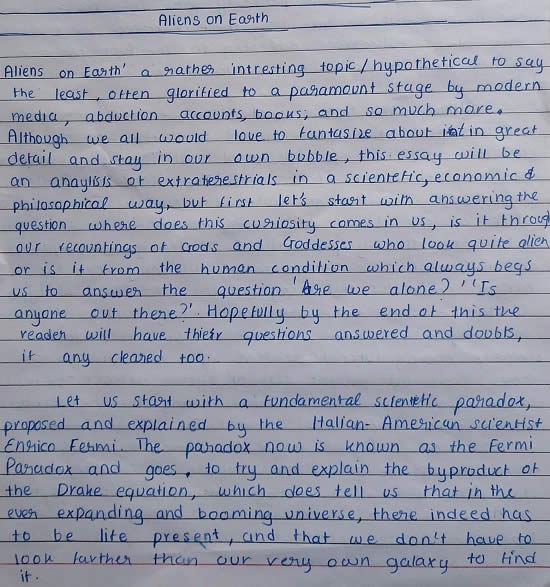 Aliens on Earth
Aliens on Earth' a rather intresting topic/hypothetical to say
the least, often glorified to a paramount stage by modern
media, abduction accounts, books, and so much more.
Although we all would love to fantasize about it in great
detail and stay in our own bubble, this essay will be
an anaylisis of extraterestrials in a scientefic, economic &
philosophical way, but first let's start with answering the
question where does this curiosity comes in us, is it throug
our recountings of Gods and Goddesses who look quite alien
or is it from the human condition which always begs
us to answer the question 'Are we alone?' 'Is
anyone out there?'. Hopefully by the end of this the
reader will have their questions answered and doubts,
if any cleared too.
Let us start with a fundamental scientefic paradox,
proposed and explained by the Italian-American scientist
Enrico Fermi. The paradox now is known as the Fermi
Paradox and goes, to try and explain the byproduct of
the Drake equation, which does tell us that in the
ever expanding and booming universe, there indeed has
to be life present, and that we don't have to
look further than our very own galaxy to find
it.